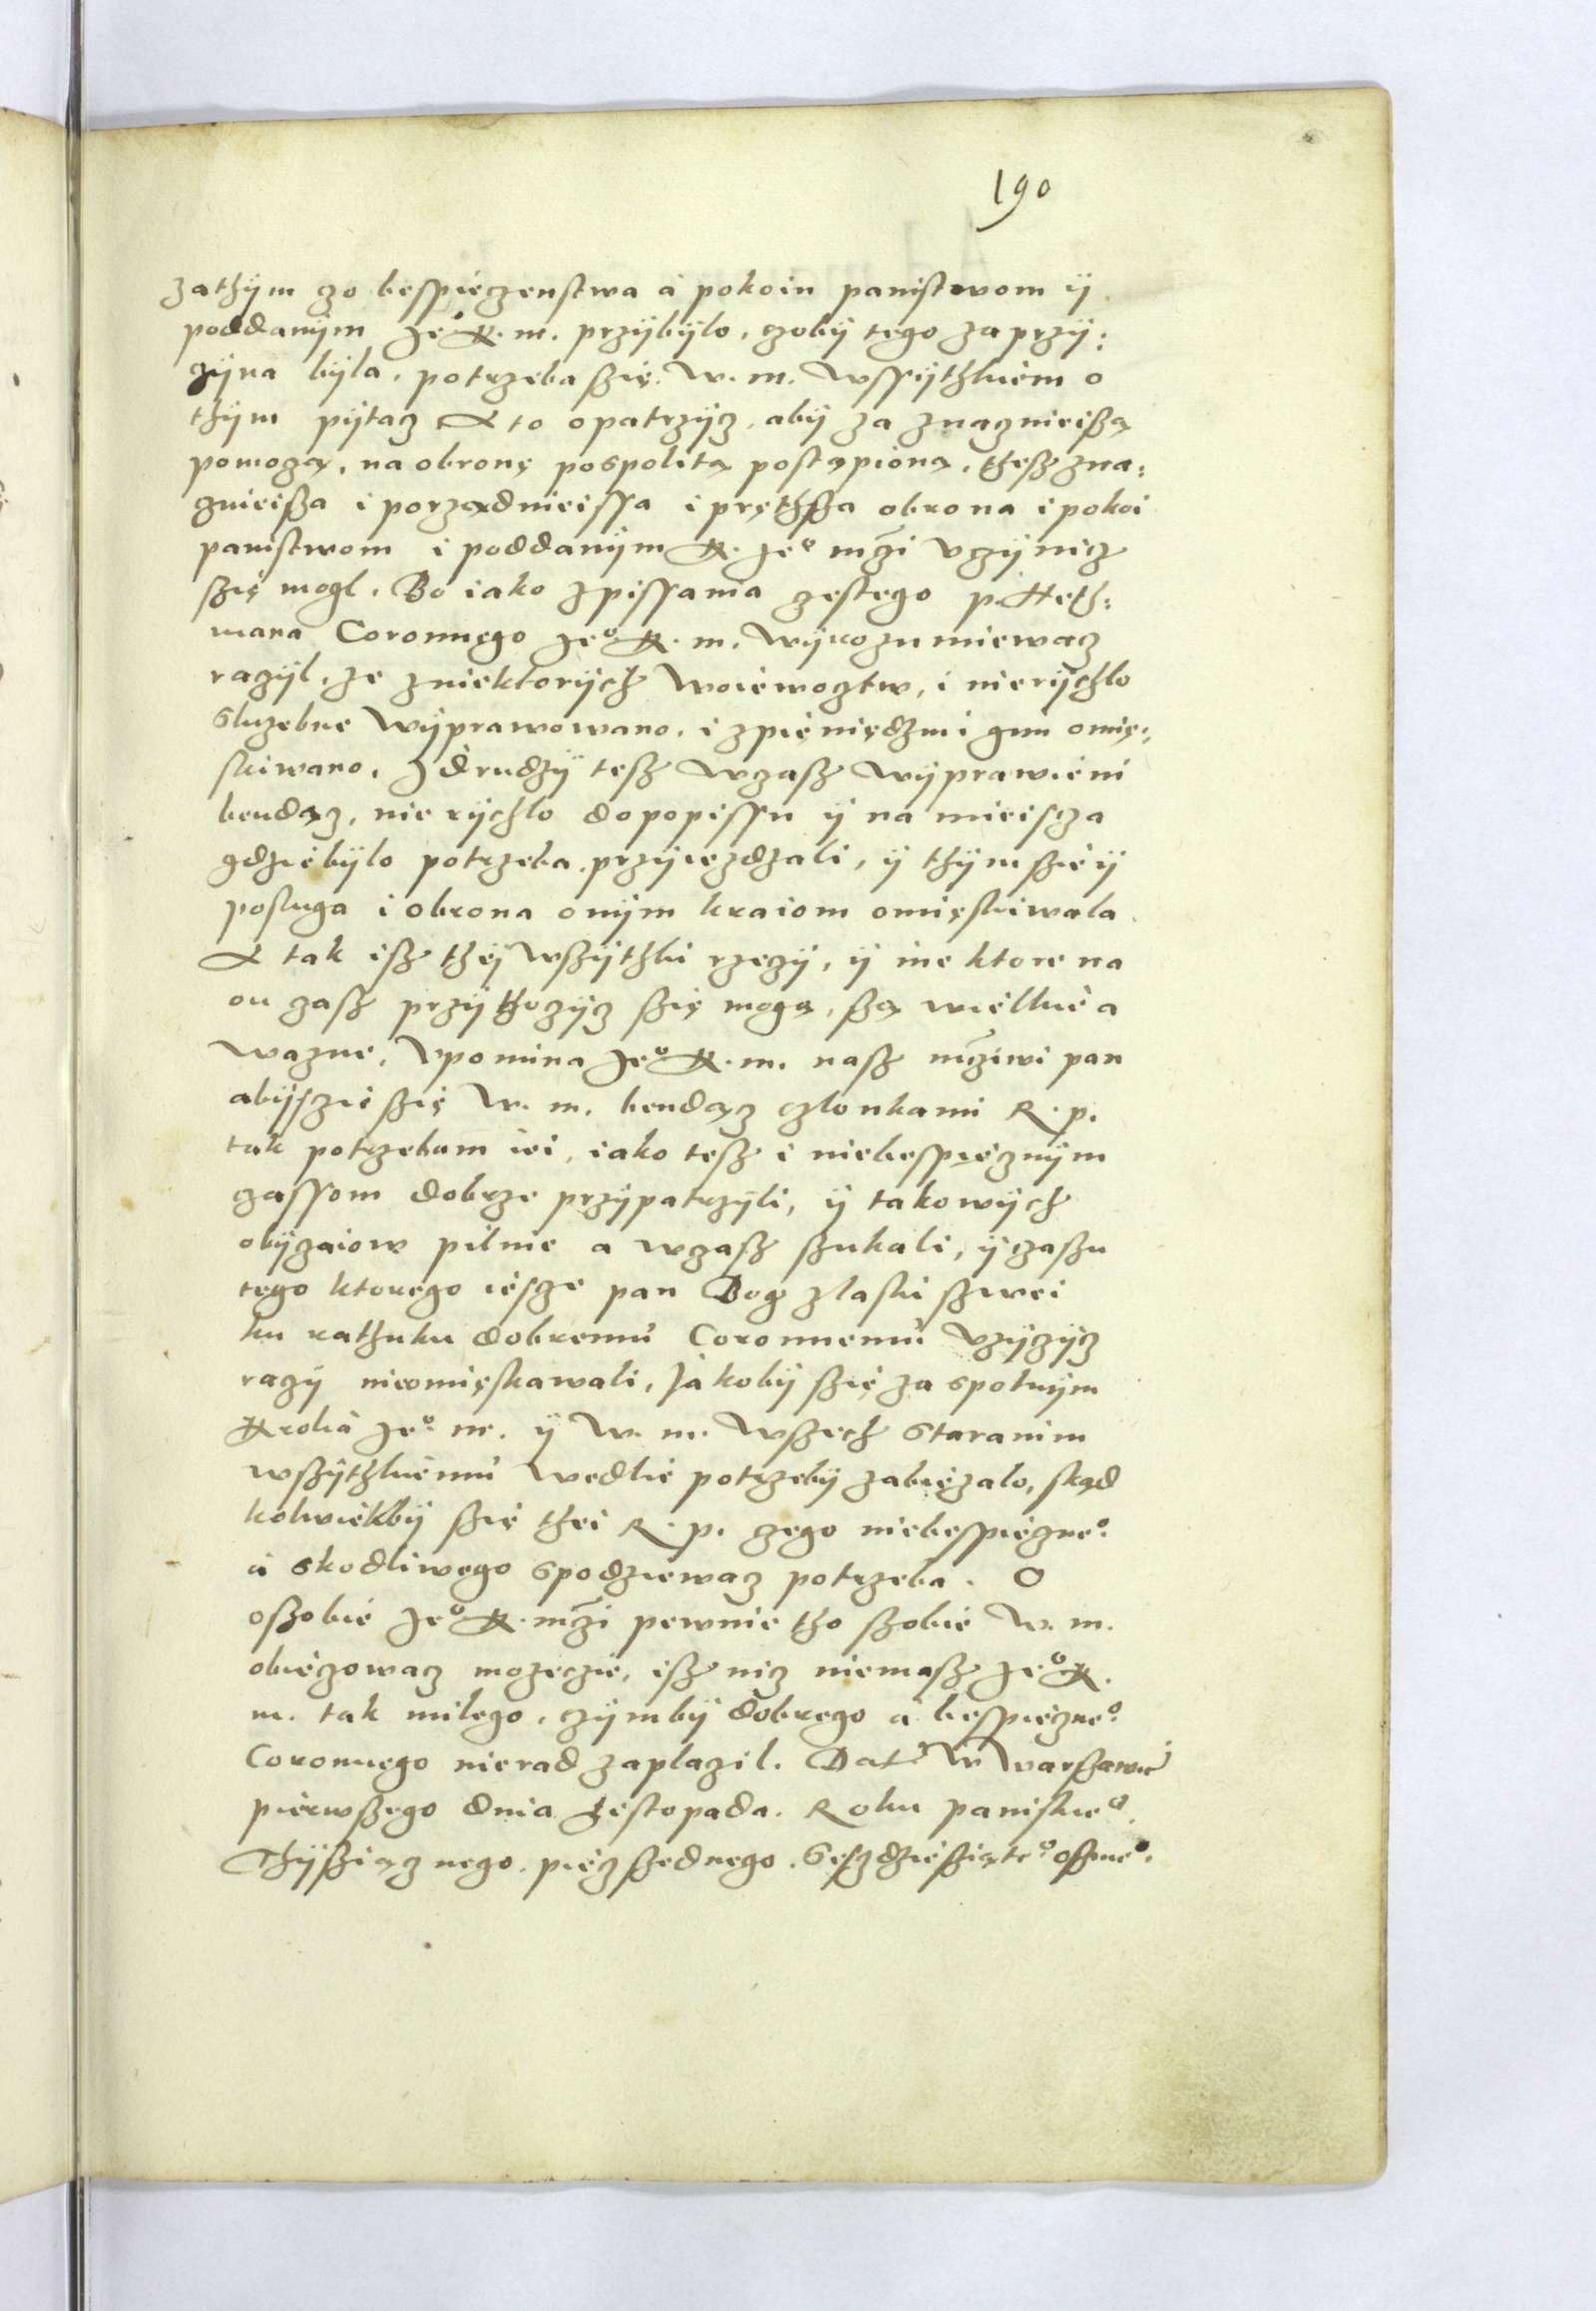 190
zathÿm czo bespieczenstwa à pokoiu panistwom ÿ
poddanÿm Jeº K. m. przÿbÿlo, czobÿ tego za przÿ:
czÿna bÿla, potrzeba szię. W. m. wssÿthkiem o
thÿm pÿtacz A to opatrzÿcz, abÿ za znacznieißą
pomoczą, na obronę pospolitą postąpioną, thesz zna:
cznieißa i porządnieissa i pręthßa obrona i pokoi
panistwom i poddanÿm K. Jeº mczi uczÿnicz
szię mogl. Bo iako zpissania czestego p. Heth:
mana Coronnego Jeº K. m. wÿrozumiewacz
raczÿl, ze zniektorÿch woiewoztw, i nierÿchlo
sluzebne wÿprawowano, i zpieniędzmi gim omię:
skiwano, J drudzÿ tesz wczasz wÿprawieni
bendącz, nie rÿchlo do popissu ÿ na mieiscza
gdzie bÿlo potrzeba przÿiezdzali, ÿ thÿm szie ÿ
posluga i obrona onÿm kraiom omięskiwala
A tak isz theÿ wszÿthki rzeczÿ, ÿ ine ktore na
on czasz przÿthoczÿcz szię mogą, są wielkie a
wazne, Upomina Jeº K. m. nasz mcziwi pan
abÿsczie szię W. m. bendącz czlonkami R. p.
tak potrzebam iei, iako tesz i niebespiecznÿm
czassom dobrze przÿpatrzÿli, ÿ takowÿch
obÿczaiow pilnie a wczasz szukali, ÿ czaszu
tego ktorego iescze pan Bog z laski szwei
ku rathuku dobremu Coronnemu uzÿczÿcz
raczÿ nieomięskawali, Jakobÿ szię za spolnÿm
Krolia Jeº m. ÿ W. m. wszech staranim
wszÿthkiemu wedlie potrzebÿ zabiezalo, skąd
kolwiekbÿ szię thei R. p. czego niebespieczneº
à skodliwego spodziewacz potrzeba. O
oszobie Jeº K. mczi pewnie tho szobie W. m.
obieczowacz mozeczie, isz nicz niemasz Jeº K.
m. tak milego, czÿmbÿ dobrego à bespieczneº
Coronnego nierad zaplaczil. Dat W Warszawie
pierwszego dnia Listopada. Roku paniskieº
Thÿsziącznego pięczszednego. Seszdziesziąteº oszmeº.